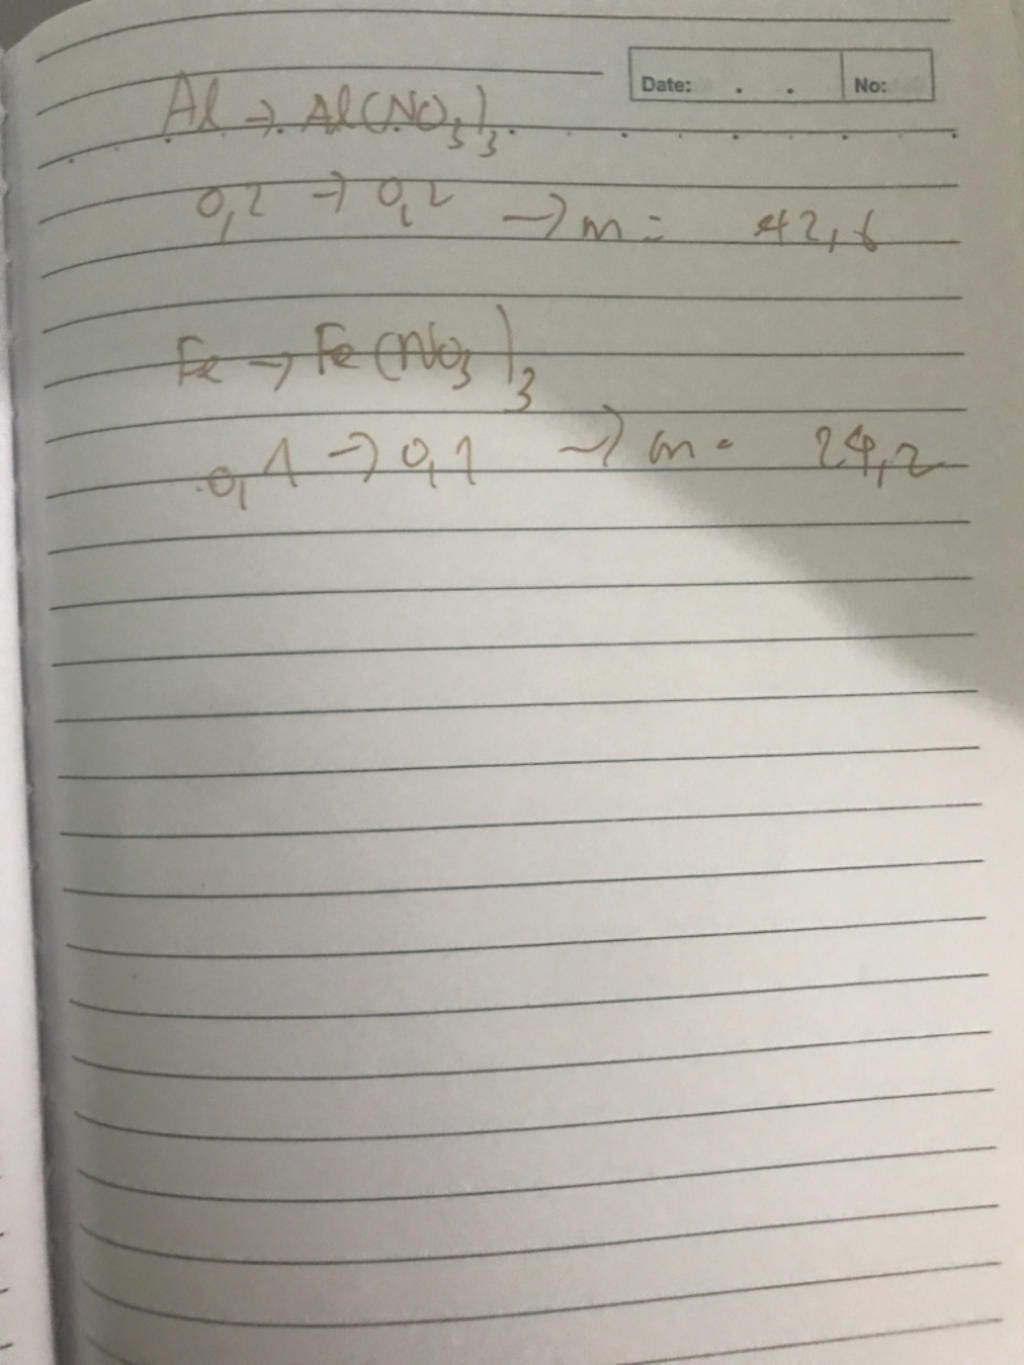 Date: . . No:
Al → Al(NO3)3
0,2 → 0,2 → m = 42,6
Fe → Fe(NO3)3
0,1 → 0,1 → m = 24,2